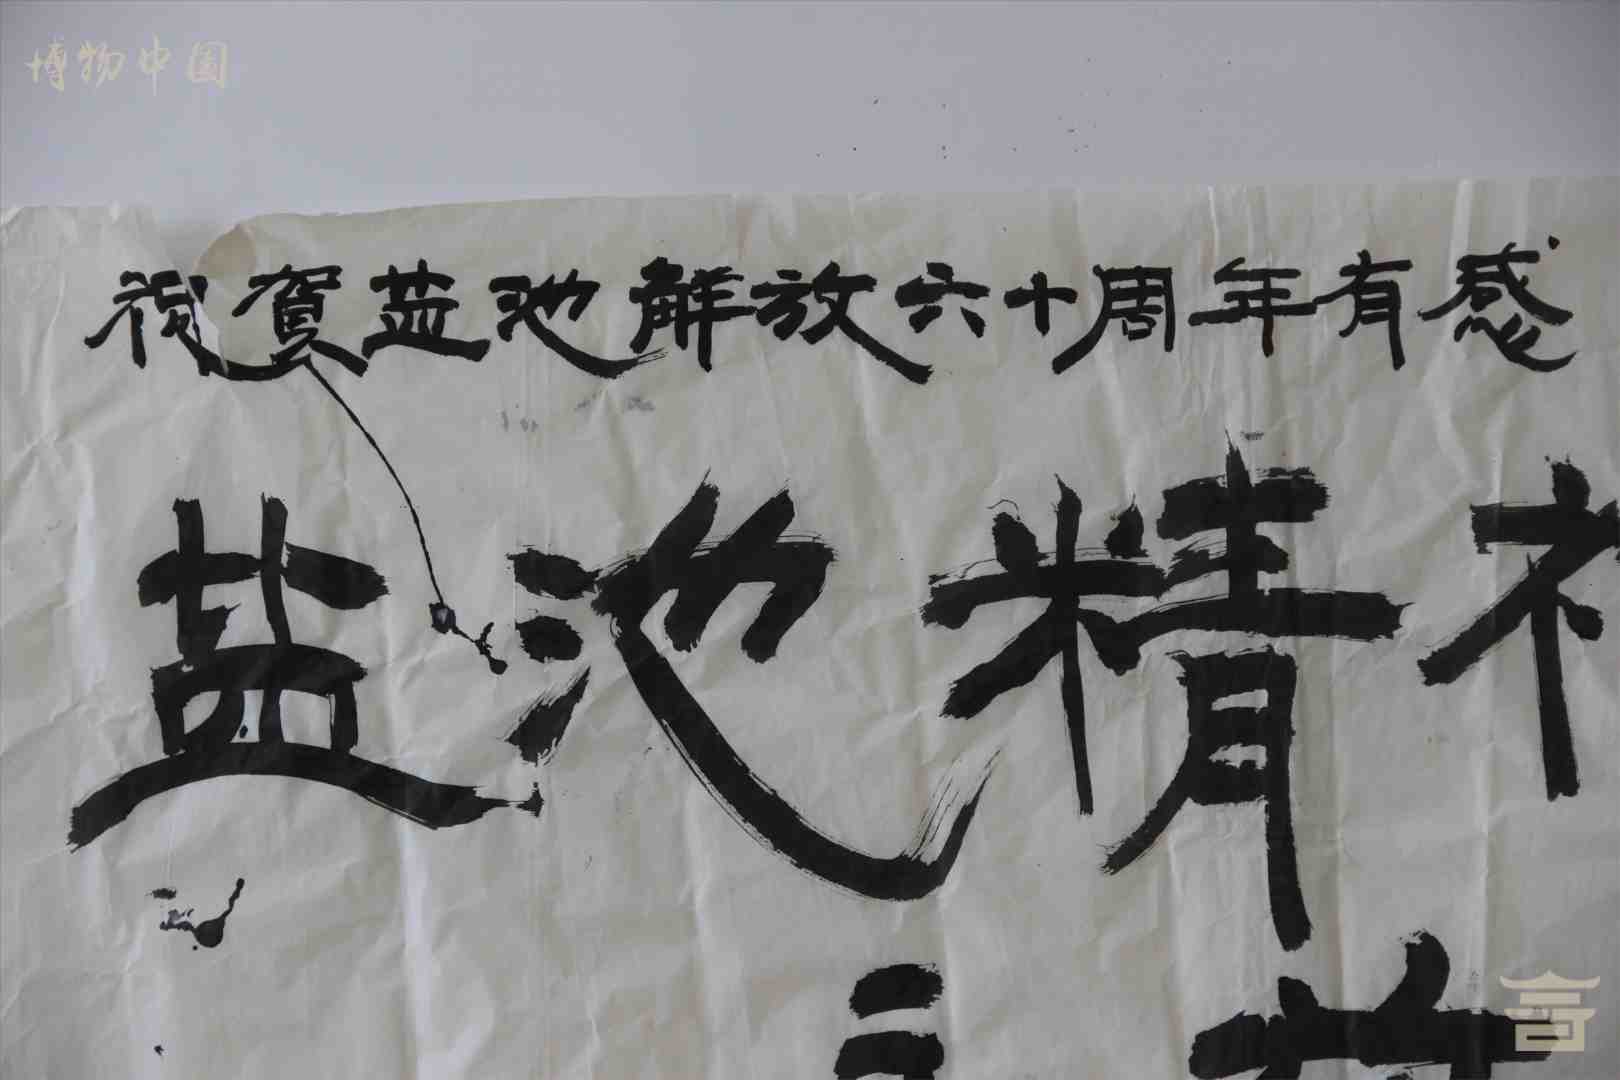 博物中国
祝贺盐池解放六十周年有感
盐池精神